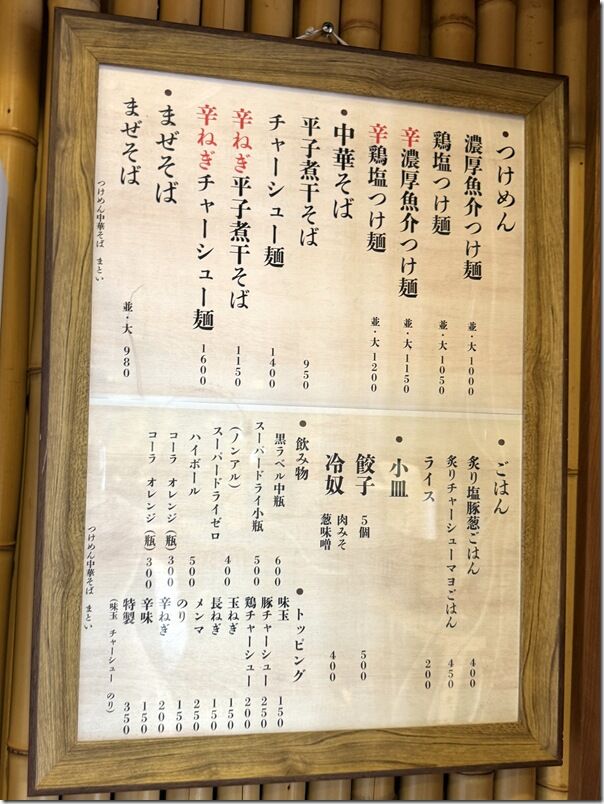 ・つけめん
濃厚魚介つけ麺 並・大 1000
鶏塩つけ麺 並・大 1050
辛濃厚魚介つけ麺 並・大 1150
辛鶏塩つけ麺 並・大 1200
・中華そば
平子煮干そば 950
チャーシュー麺 1400
辛ねぎ平子煮干そば 1150
辛ねぎチャーシュー麺 1600
・まぜそば
まぜそば 並・大 980
つけめん中華そば まとい
・ごはん
炙り塩豚葱ごはん 400
炙りチャーシューマヨごはん 450
ライス 200
・小皿
餃子 5個 500
冷奴 肉みそ 葱味噌 400
・飲み物
黒ラベル中瓶 600
スーパードライ小瓶 500
(ノンアル)
スーパードライゼロ 400
ハイボール 500
コーラ オレンジ(瓶) 300
コーラ オレンジ(瓶) 300
・トッピング
味玉 150
豚チャーシュー 250
鶏チャーシュー 200
玉ねぎ 150
長ねぎ 150
メンマ 250
のり 150
辛ねぎ 200
辛味 150
特製 350
(味玉 チャーシュー のり)
つけめん中華そば まとい